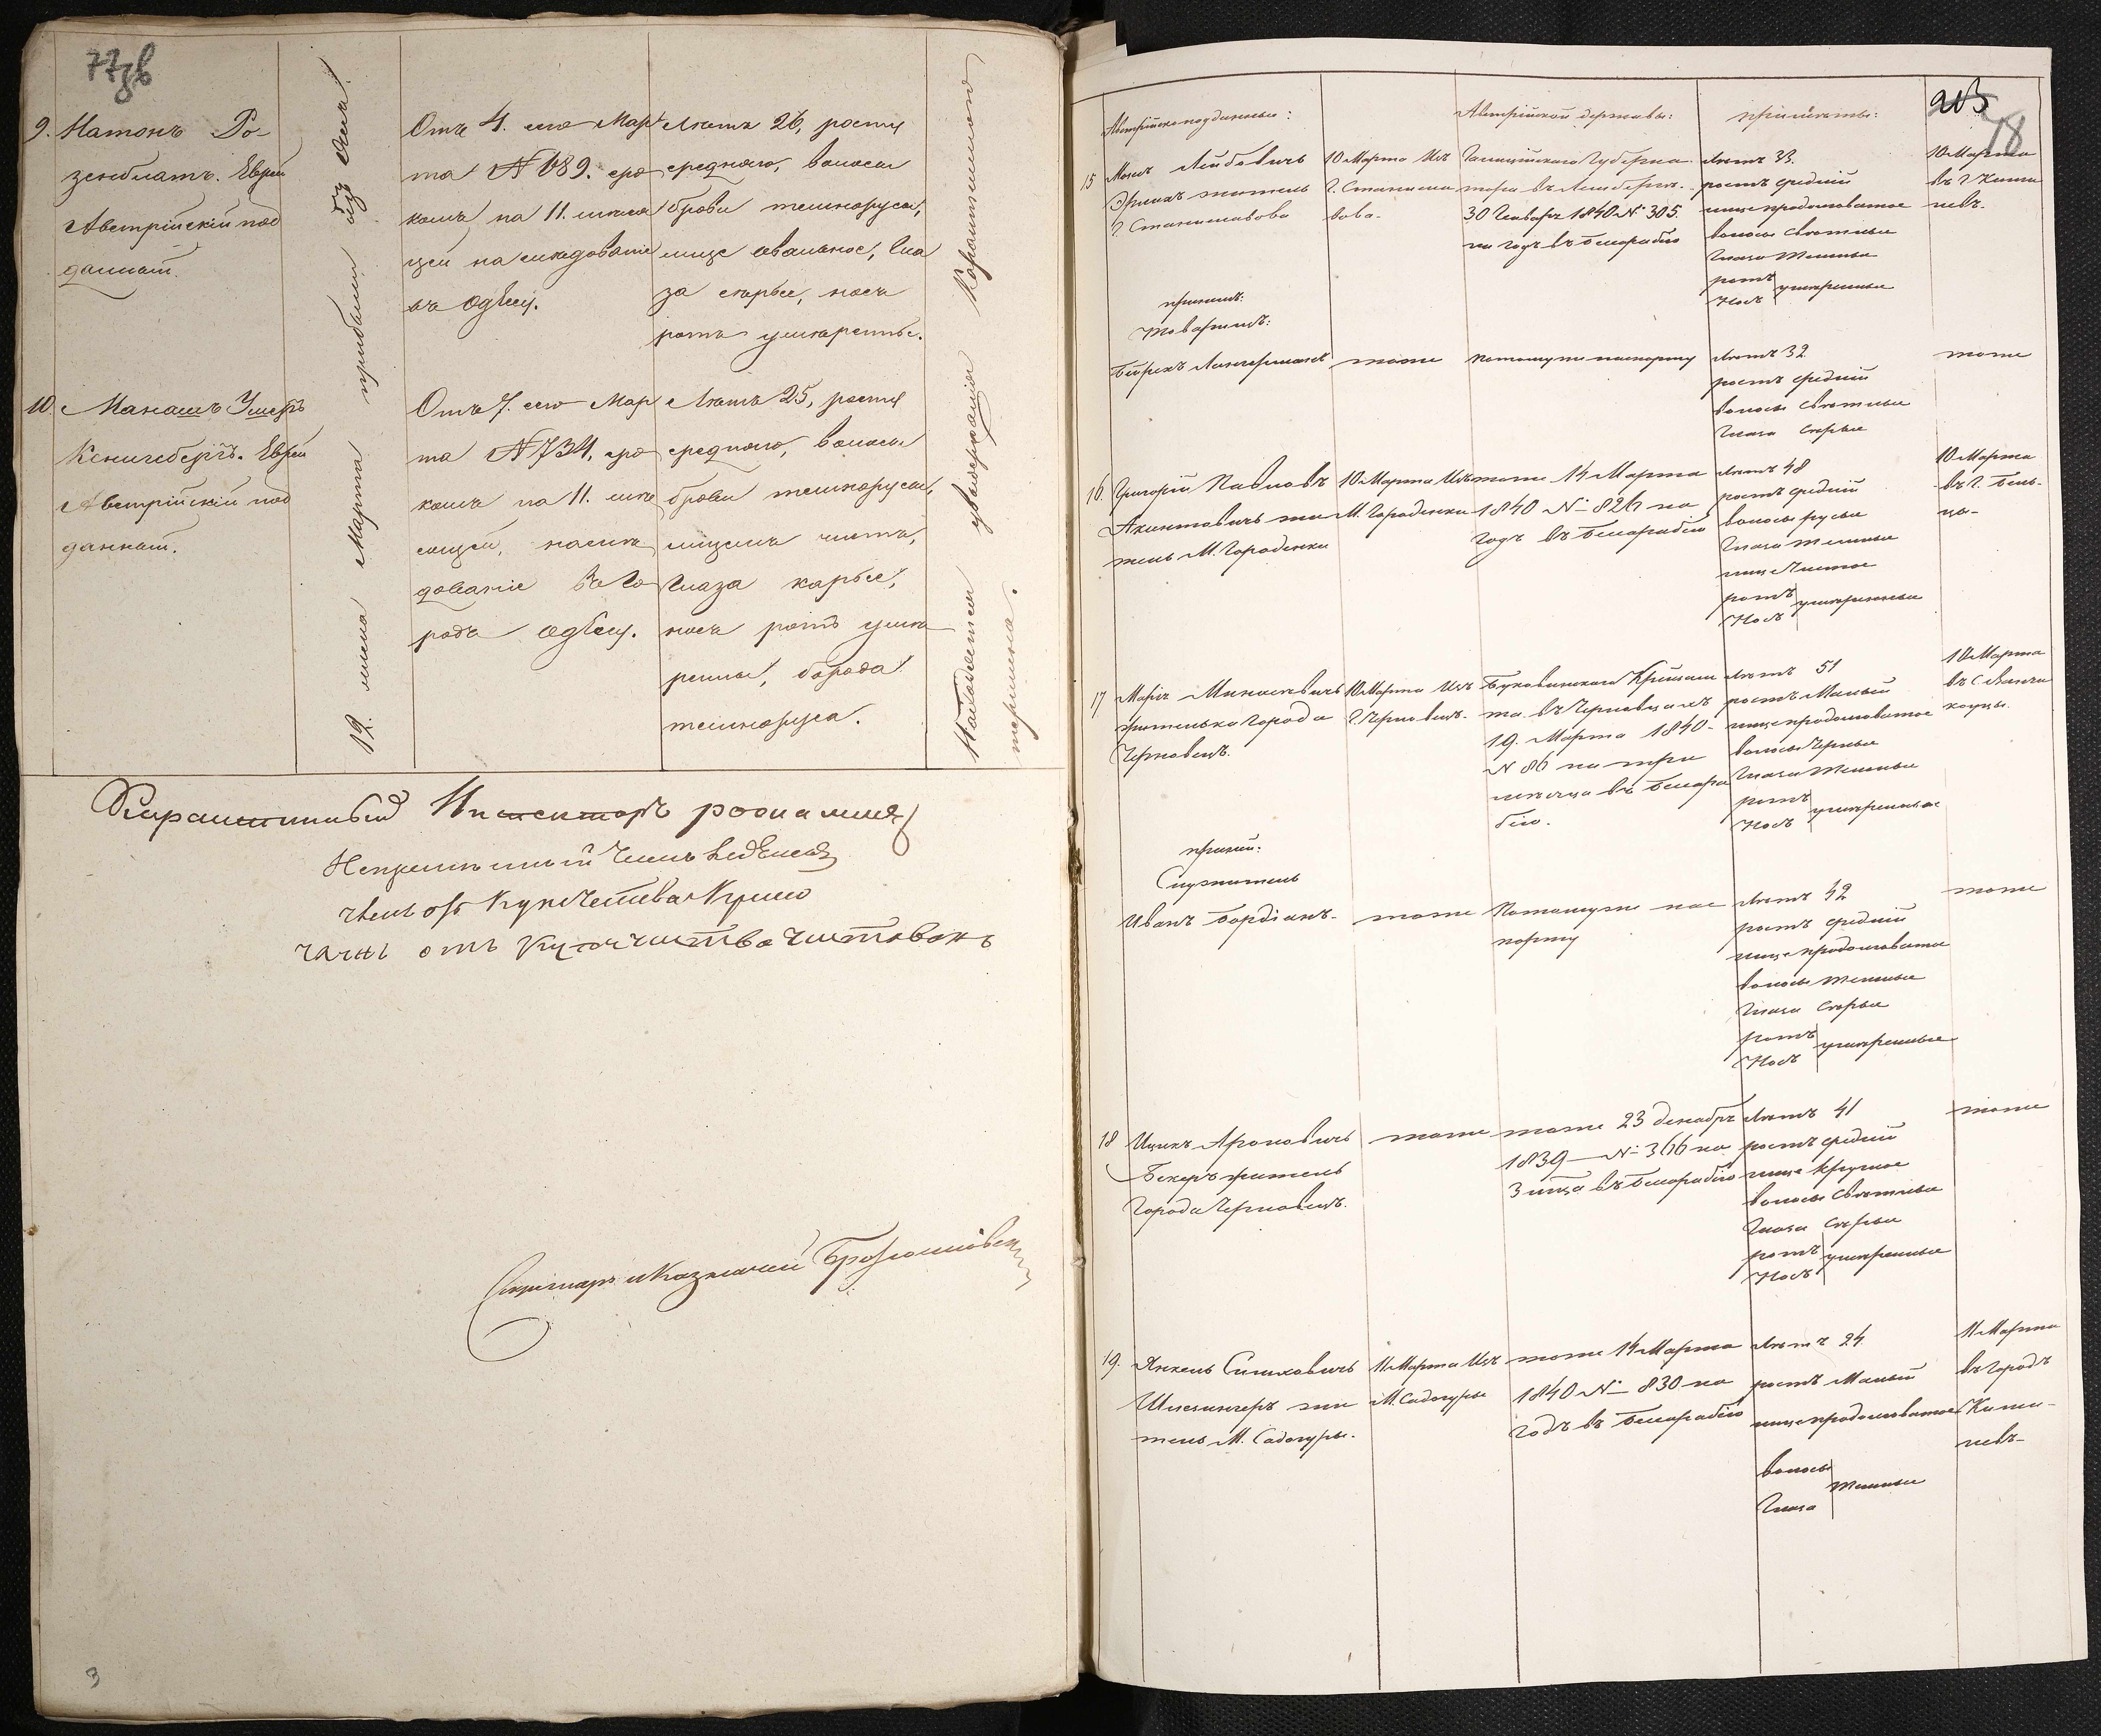 77зв
9. Натонъ Ро-
зенблатъ. Еврей
Австрійскій под
данной.
12. числа Марта прибыли изъ
Отъ 4. сего Мар
та № 689. сро
комъ на 11. мѣся
цей на слѣдованіе
въ Одессу.
Лѣтъ 26, росту
средняго, волосы
брови темнорусы,
лице овальное, гла
за сѣрые, носъ
ротъ умѣренные.
10. Манашъ
Кенигсбергъ. Еврей
Австрійскій под
данной.
Отъ 7. сего Мар
та № 734, сро
комъ на 11. мѣс
сящей, на слѣ
дованіе въ Го
родъ Одессу.
Лѣтъ 25, росту
средняго, волосы
брови темнорусы,
лицемъ чистъ,
глаза карые,
носъ ротъ умѣ
ренны, борода
темноруса.
Карантинного
термина.
Карантинный Инспекторъ
Непремѣнный Членъ
Членъ отъ Купечества
членъ отъ Купечества
Секретарь и Казначей
3
203
78
Австрійско подданные:
Австрійской державы:
примѣты:
15 Мошъ Лейбовичъ
житель
Г. Станиславова
10 Марта Изъ
Г. Станисла
вова-
Галиційскаго Губерна-
тора въ Лембергѣ-
30 Генваря 1840 № 305.
на годъ въ Бессарабію
Лѣтъ 33.
ростъ средній
лице продолговатое
волосы свѣтлые
глаза темные
ротъ
носъ умѣренные
10 Марта
въ Г. Киши
невъ-
при немъ:
товарищъ:
тоже
по тому же паспорту
Лѣтъ 32
ростъ средній
волосы свѣтлые
глаза сѣрые
тоже
16. Григорій Павловъ
жи
тель М. Городенки
10 Марта Изъ
М. Городенки
тоже 14 Марта
1840 № 826 на
годъ въ Бессарабію
Лѣтъ 48
ростъ средній
волосы русые
глаза темные
лице чистое
ротъ
носъ умѣренные
10 Марта
въ Г. Бель-
цы-
17 Марія
жителька города
Черновецъ.
10 Марта Изъ
Г. Черновецъ-
Буковинскаго Крейзам
та въ Черновцахъ
19. Марта 1840-
№ 86 на три
мѣсяца въ Бессара
бію.
Лѣтъ 51
ростъ малый
лице продолговатое
волосы черные
глаза темные
ротъ
носъ умѣренные
10 Марта
въ С.
при ней:
Служитель
Иванъ Бордіанъ-
тоже
По тому же пас
порту
Лѣтъ 42
ростъ средній
лице продолговатое
волосы темные
глаза сѣрые
ротъ
носъ умѣренные
тоже
18 Ицикъ Ароновичъ
Бекеръ житель
города Черновецъ.
тоже
тоже 23 Декабря
1839 № 366 на
3 мѣца въ Бессарабію
Лѣтъ 41
ростъ средній
лице круглое
волосы свѣтлые
глаза сѣрые
ротъ
носъ умѣренные
тоже
19. Янкель
жи
тель М. Садогуры.
11 Марта Изъ
М. Садогуры
тоже 14 Марта
1840 № 830 на
годъ въ Бессарабію
Лѣтъ 24
ростъ малый
лице продолговатое
волосы
глаза темные
11 Марта
въ городъ
Киши-
невъ-